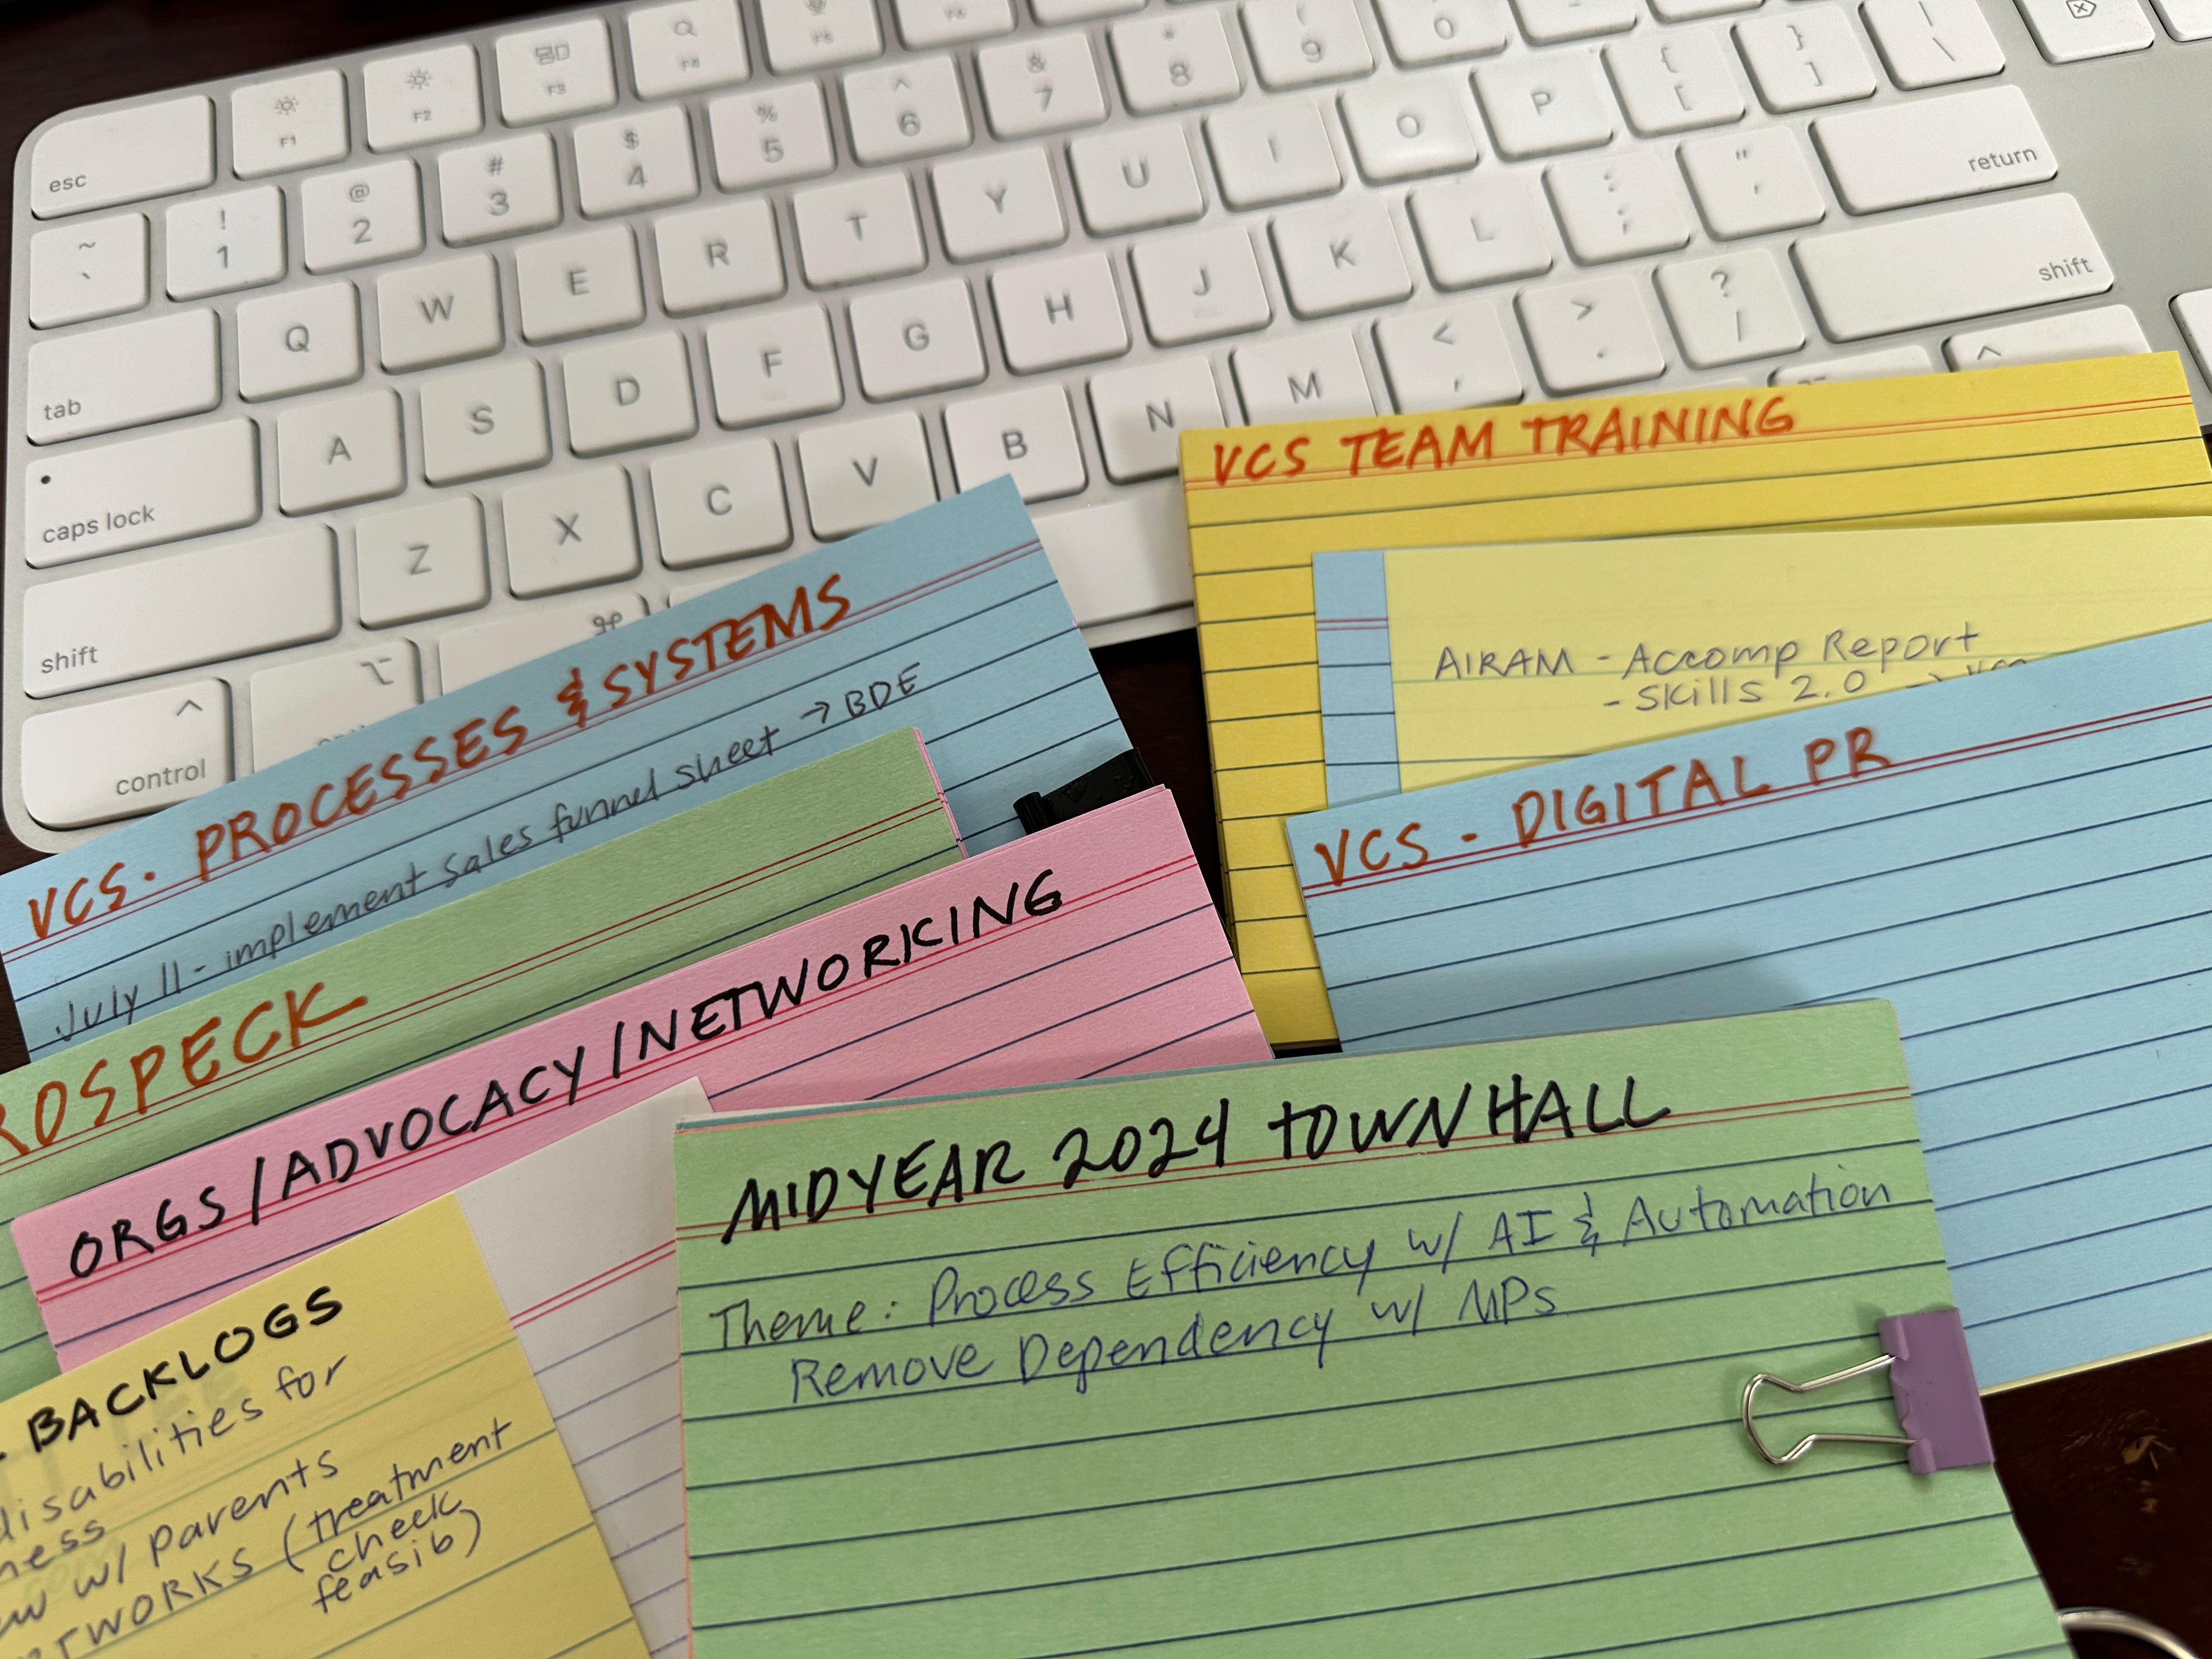 esc
F1
F2
F3
F4
F5
F6
~
`
!
1
@
2
#
3
$
4
%
5
^
6
&
7
*
8
(
9
)
0
{
[
}
]
|
\
tab
Q
W
E
R
T
Y
U
I
O
P
return
caps lock
A
S
D
F
G
H
J
K
L
:
;
"
'
shift
Z
X
C
V
B
N
M
<
,
>
.
?
/
shift
control
VCS TEAM TRAINING
AIRAM - Accomp Report
- Skills 2.0 →
VCS - DIGITAL PR
VCS. PROCESSES & SYSTEMS
July 11 - implement sales funnel sheet → BDE
ROSPECK
ORGS / ADVOCACY / NETWORKING
MIDYEAR 2024 TOWNHALL
Theme: Process Efficiency w/ AI & Automation
Remove Dependency w/ MPs
- BACKLOGS
disabilities for
ness
w/ parents
TWORKS (treatment
check
feasib)